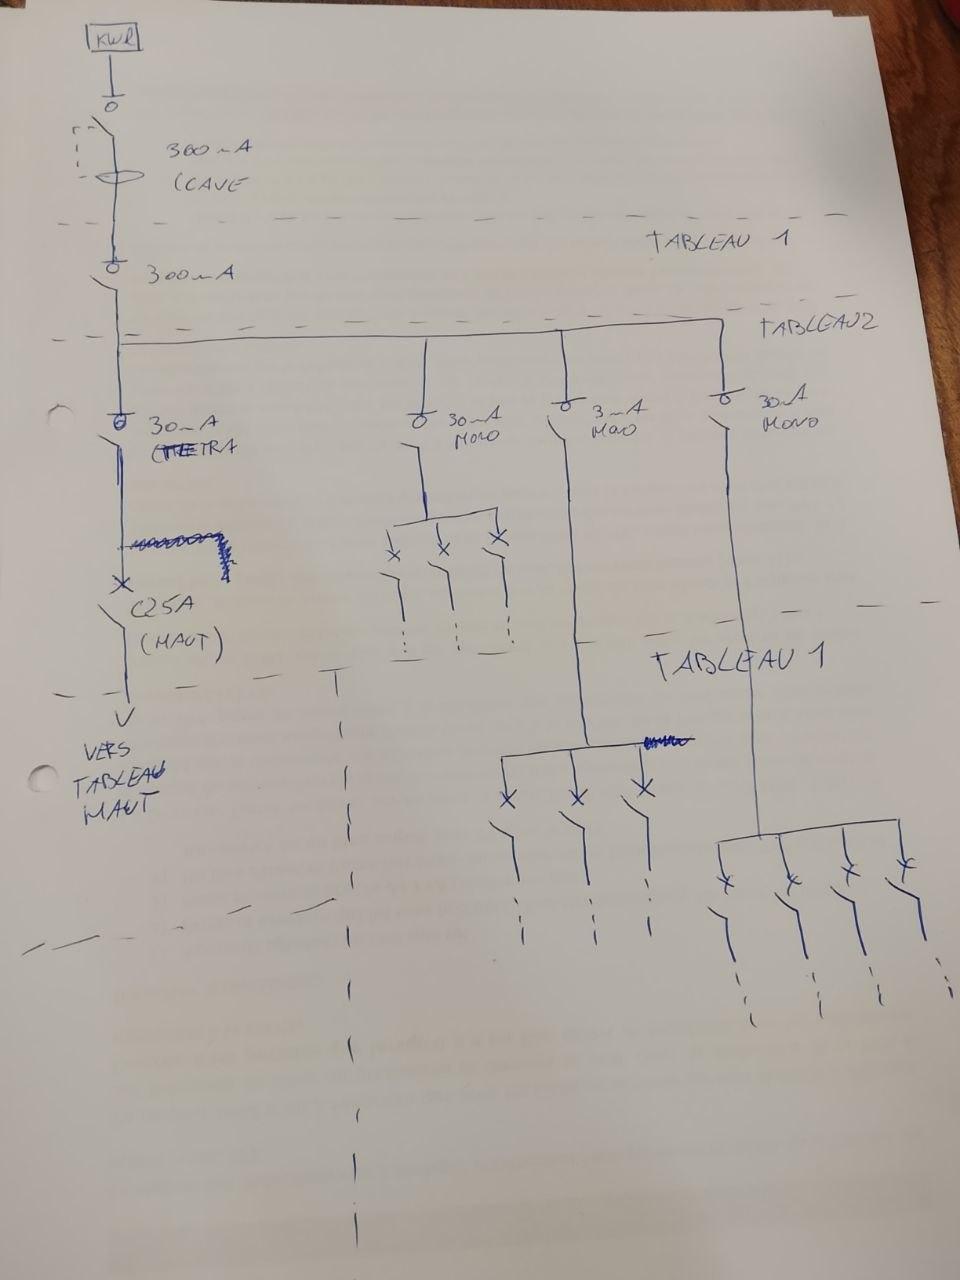 KWR
300mA
(CAVE
TABLEAU 1
300mA
TABLEAU2
30mA
TETRA
30mA
MONO
3mA
MONO
30mA
MONO
C25A
(HAUT)
TABLEAU 1
VERS
TABLEAU
HAUT